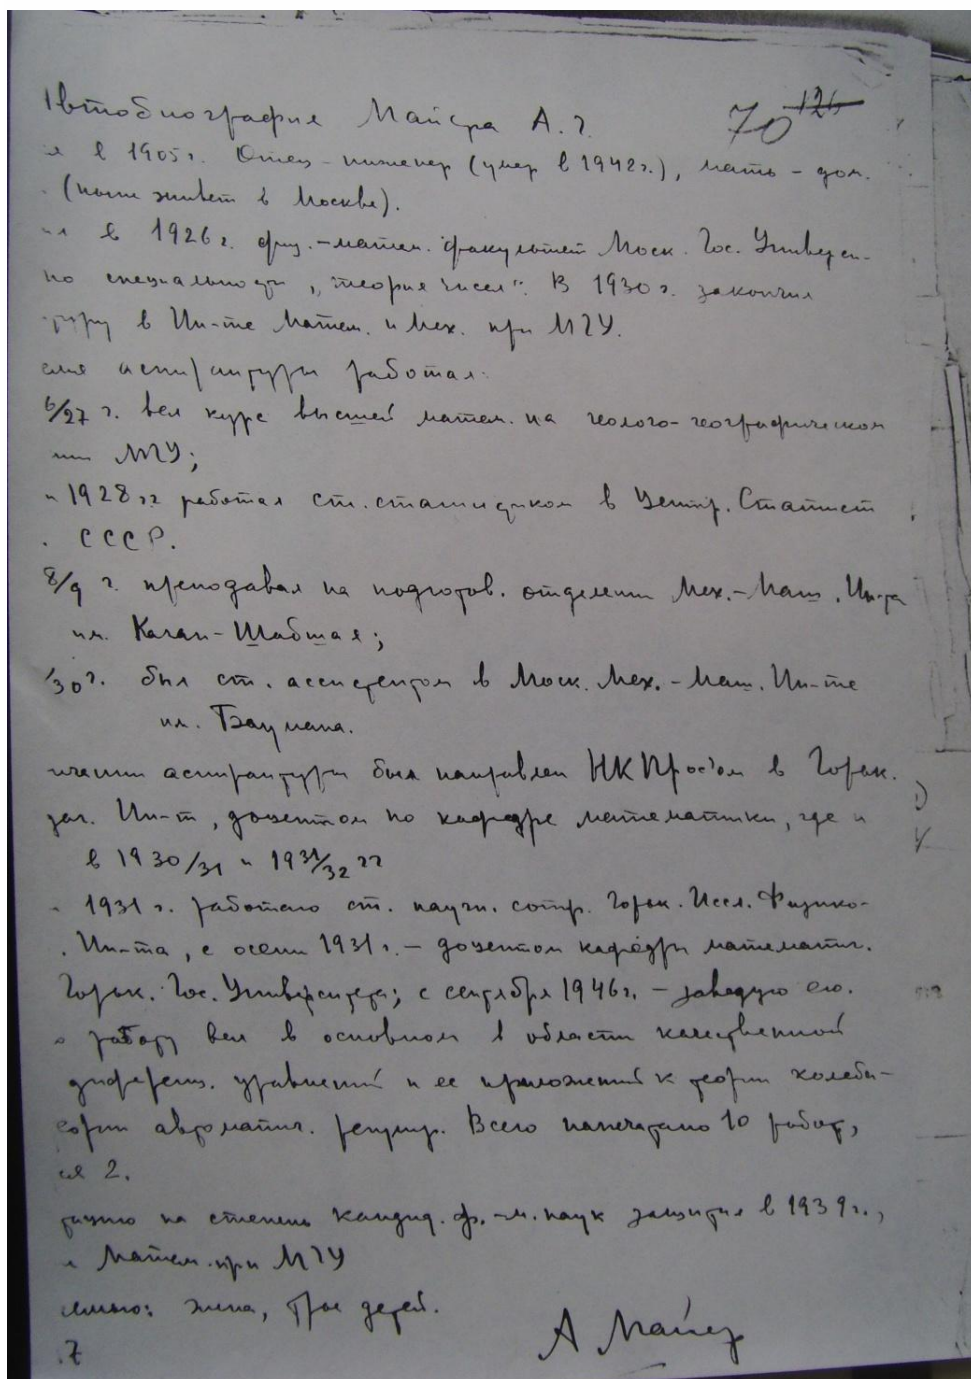 Автобиография Майера А.Г.
70 126
я в 1905 г. Отец - инженер (умер в 1942 г.), мать - дом.
(ныне живет в Москве).
ил в 1926 г. физ.-матем. факультет Моск. Гос. Универси-
по специальности „теория чисел". В 1930 г. закончил
туру в Ин-те Матем. и Мех. при МГУ.
емя аспирантуры работал:
6/27 г. вел курс высшей матем. на геолого-географическом
нии МГУ;
и 1928 гг работал ст. статистиком в Центр. Статист
. СССР.
8/9 г. преподавал на подготов. отделении Мех.-Маш. Ин-та
им. Каган-Шабшая;
/30 г. был ст. ассистентом в Моск. Мех.-Маш. Ин-те
им. Баумана.
нчании аспирантуры был направлен НКПросом в Горьк.
Ин-т, доцентом по кафедре математики, где и
в 1930/31 и 1931/32 гг
1931 г. работаю ст. научн. сотр. Горьк. Иссл. Физико-
. Ин-та, с осени 1931 г. - доцентом кафедры математич.
Горьк. Гос. Университета; с сентября 1946 г. - заведую ею.
работу вел в основном в области качественной
дифференц. уравнений и ее приложений к теории колеба-
еории автоматич. регулир. Всего напечатано 10 работ,
ся 2.
тацию на степень кандид. ф.-м. наук защитил в 1939 г.,
Матем. при МГУ
емью: жена, трое детей.
7
А Майер